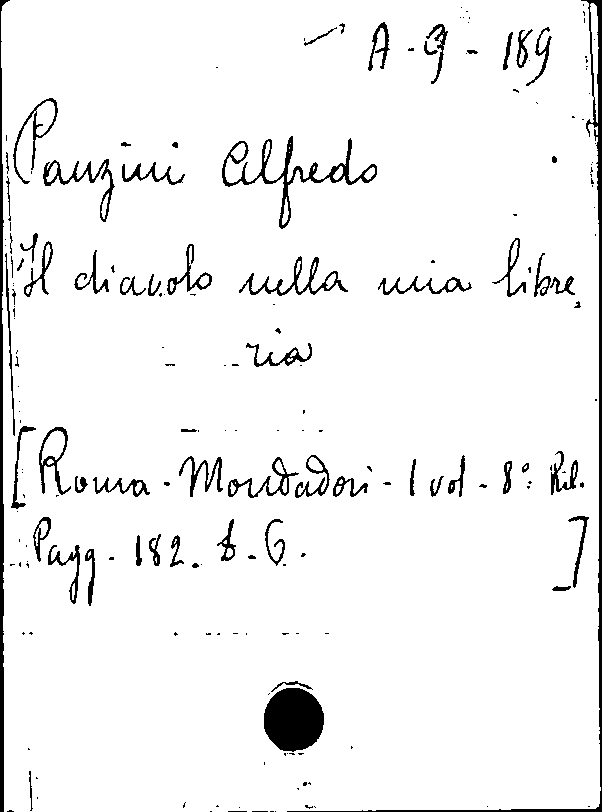 A-9-189
Panzini Alfredo
Il diavolo nella mia libre,
ria
[Roma - Mondadori - 1 vol - 8°: Ril.
Pagg. 182. £. 6. ]